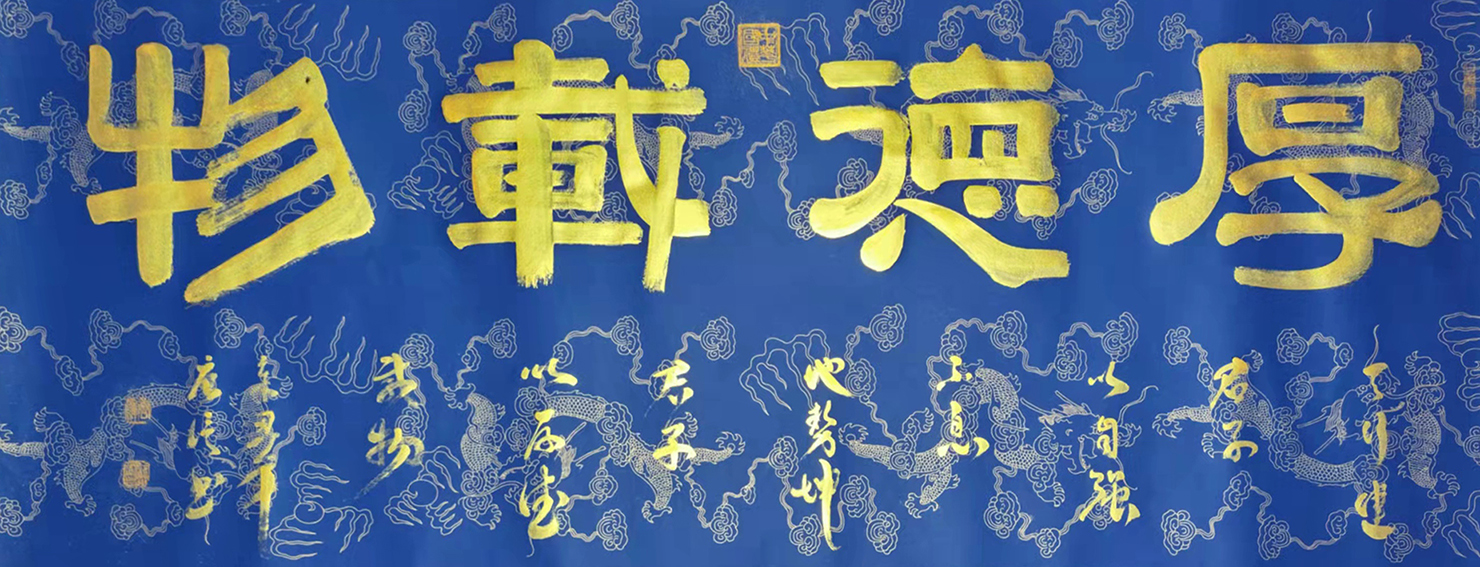 厚德載物
天行健
君子
以自強
不息
地勢坤
君子
以厚德
載物